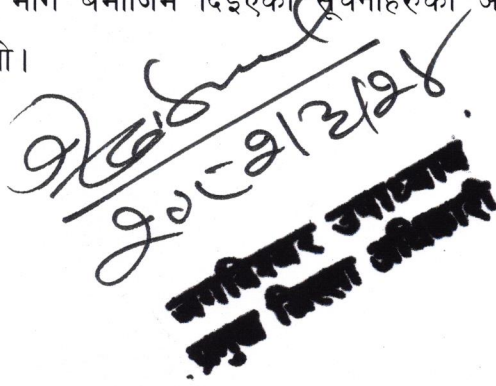 माग बमोजिम दिइएका सूचनाहरुको
२०८१।३।२४
उपाध्याय
प्रमुख जिल्ला अधिकारी